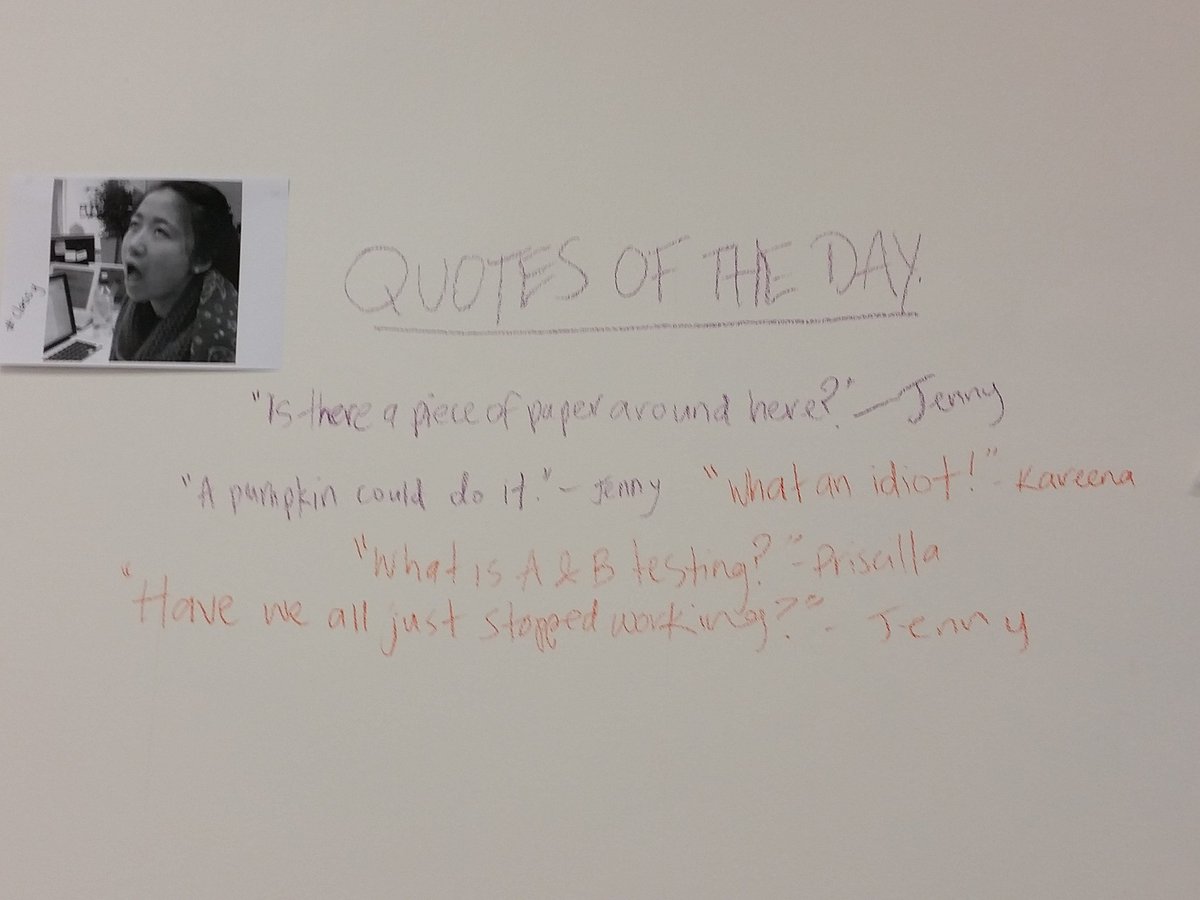 #classy
QUOTES OF THE DAY.
"Is there a piece of paper around here?" - Jenny
"A pumpkin could do it." - Jenny "What an idiot!" - Kareena
"What is A & B testing?" - Priscilla
"Have we all just stopped working?" - Jenny